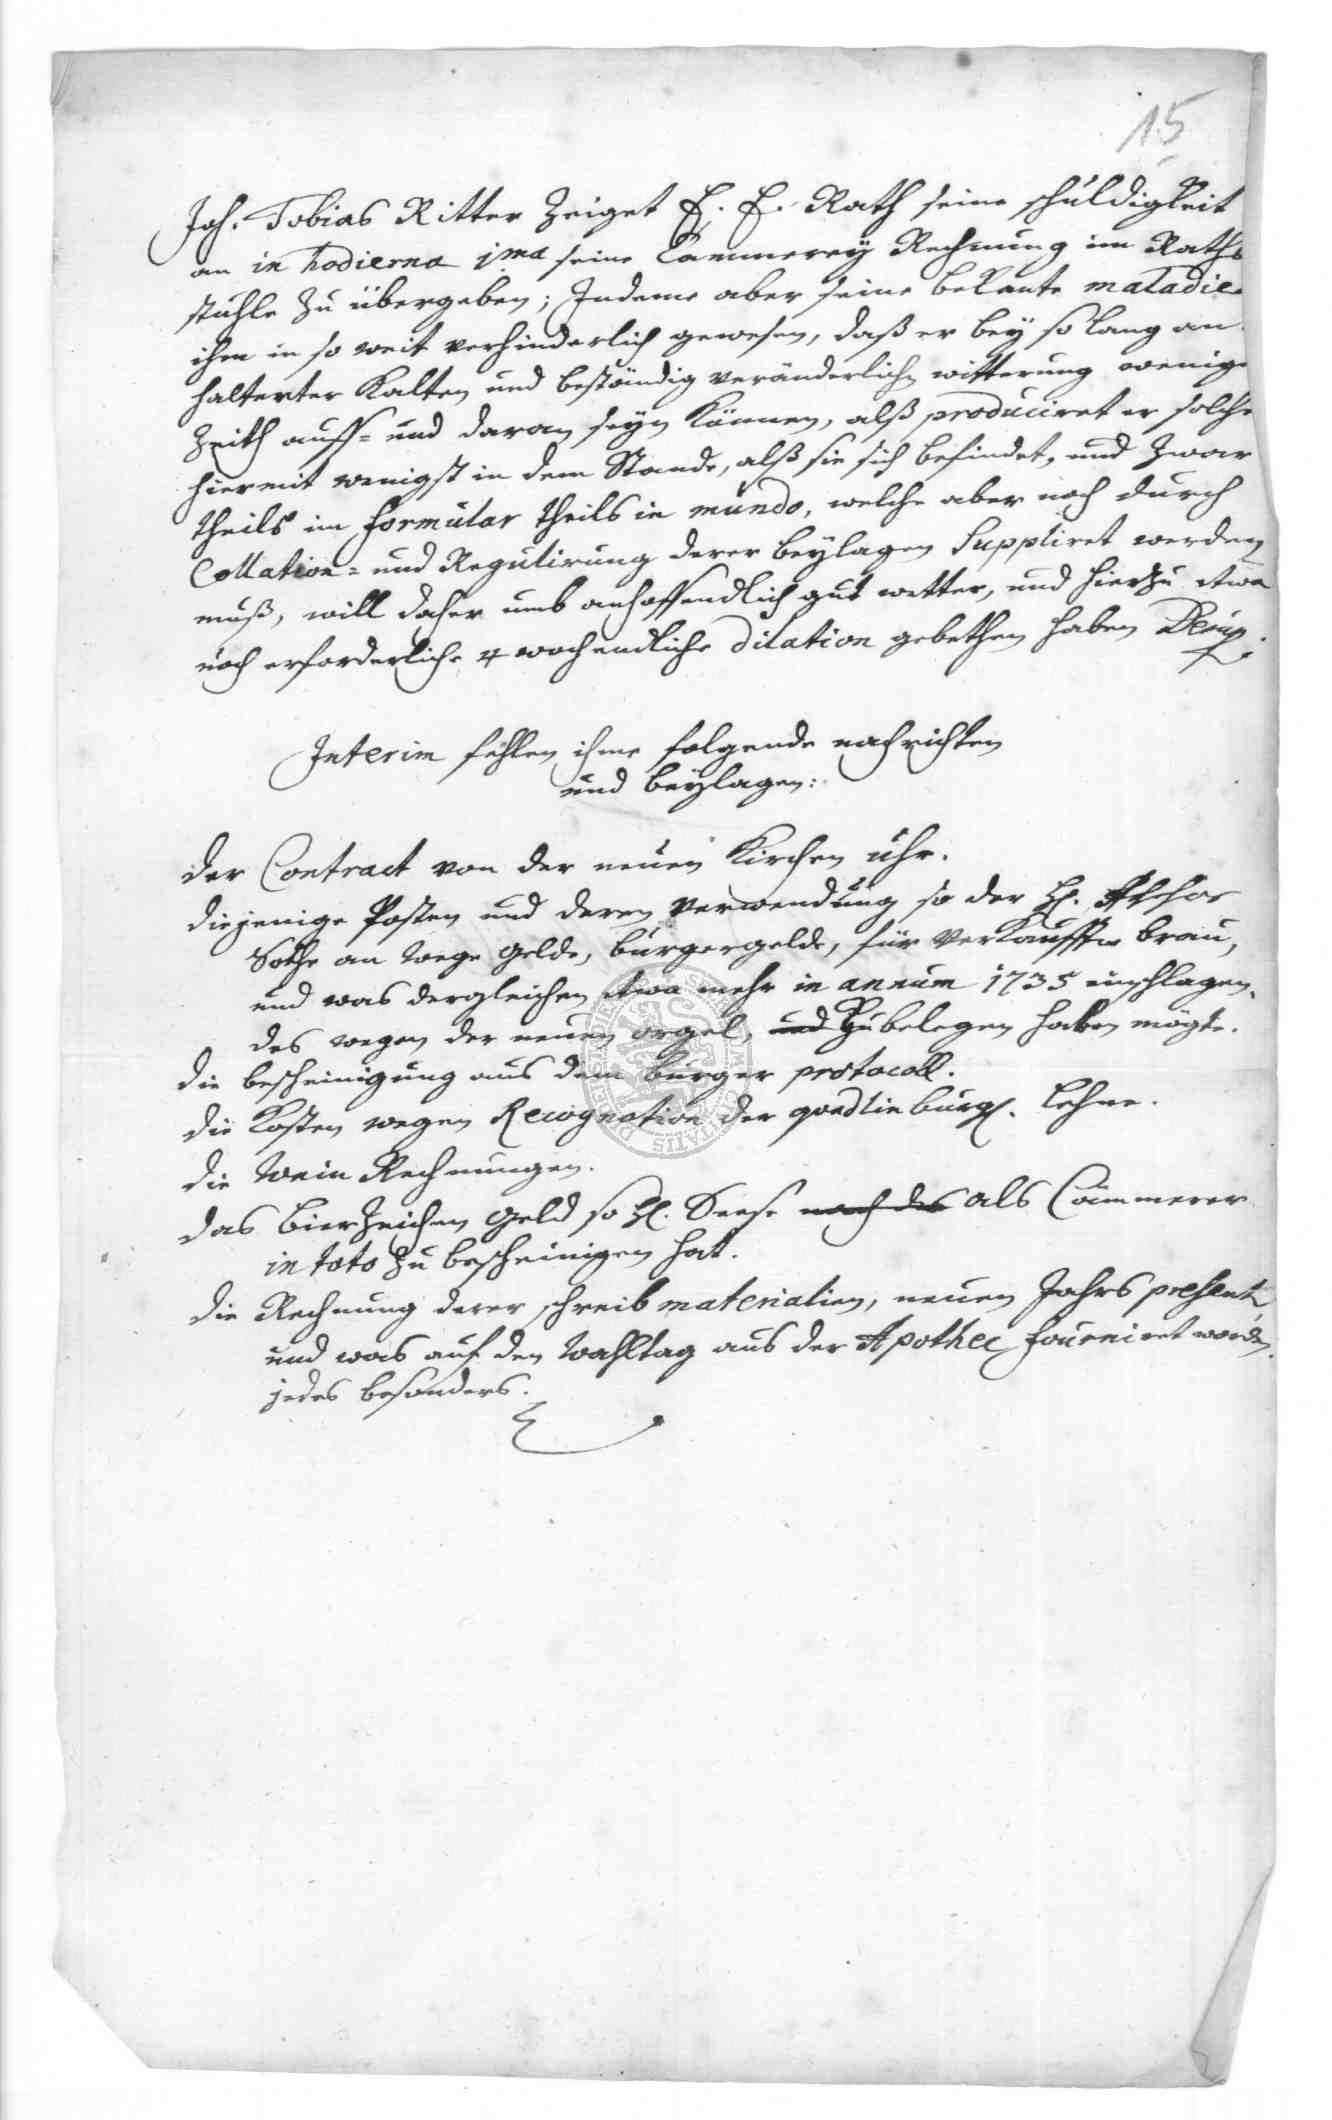 15
Joh. Tobias Ritter Zeiget E. E. Rath seine schuldigkeit
an in hodierna jma seine Cämmerey Rechnung im Raths
stuhle zu übergeben; Indeme aber seine bekante maladie
ihm in so weit verhinderlich gewesen, daß er bey so lang an
haltenter Kalten und beständig veränderlicher witterung wenige
Zeith auff= und daran seyn können, alß produciret er solche
hiermit wenigst in dem Stande, alß sie sich befindet, und Zwar
theils im formular theils in mundo, welche aber noch durch
Collation= und Regulirung derer beylagen Suppliret werden
muß, will daher umb anhoffendlich gut wetter, und hierzu etwa
noch erforderliche 4 wochendliche dilation gebethen haben
Interim fehlen ihme folgende nachrichten
und beylagen:
der Contract von der neuen Kirchen uhr.
diejenige Posten und deren verwendung so der H.
Bothe an wege gelde, burgergelde, für verkaufften brau,
und was dergleichen etwa mehr in annum 1735 einschlagen,
des wegen der neuen orgel, und Zu belegen haben mögte.
die bescheinigung aus dem burger protocoll.
die Kosten wegen Recognation der quedlinburg. Lehne.
die Wein Rechnungen.
das bierzeichen geld so H. Deese nach des als Cämmerer
in toto zu bescheinigen hat.
die Rechnung derer schreib materialien, neuen Jahrs present
und was auf den wahltag aus der Apothec fourniret worden
jedes besonders.